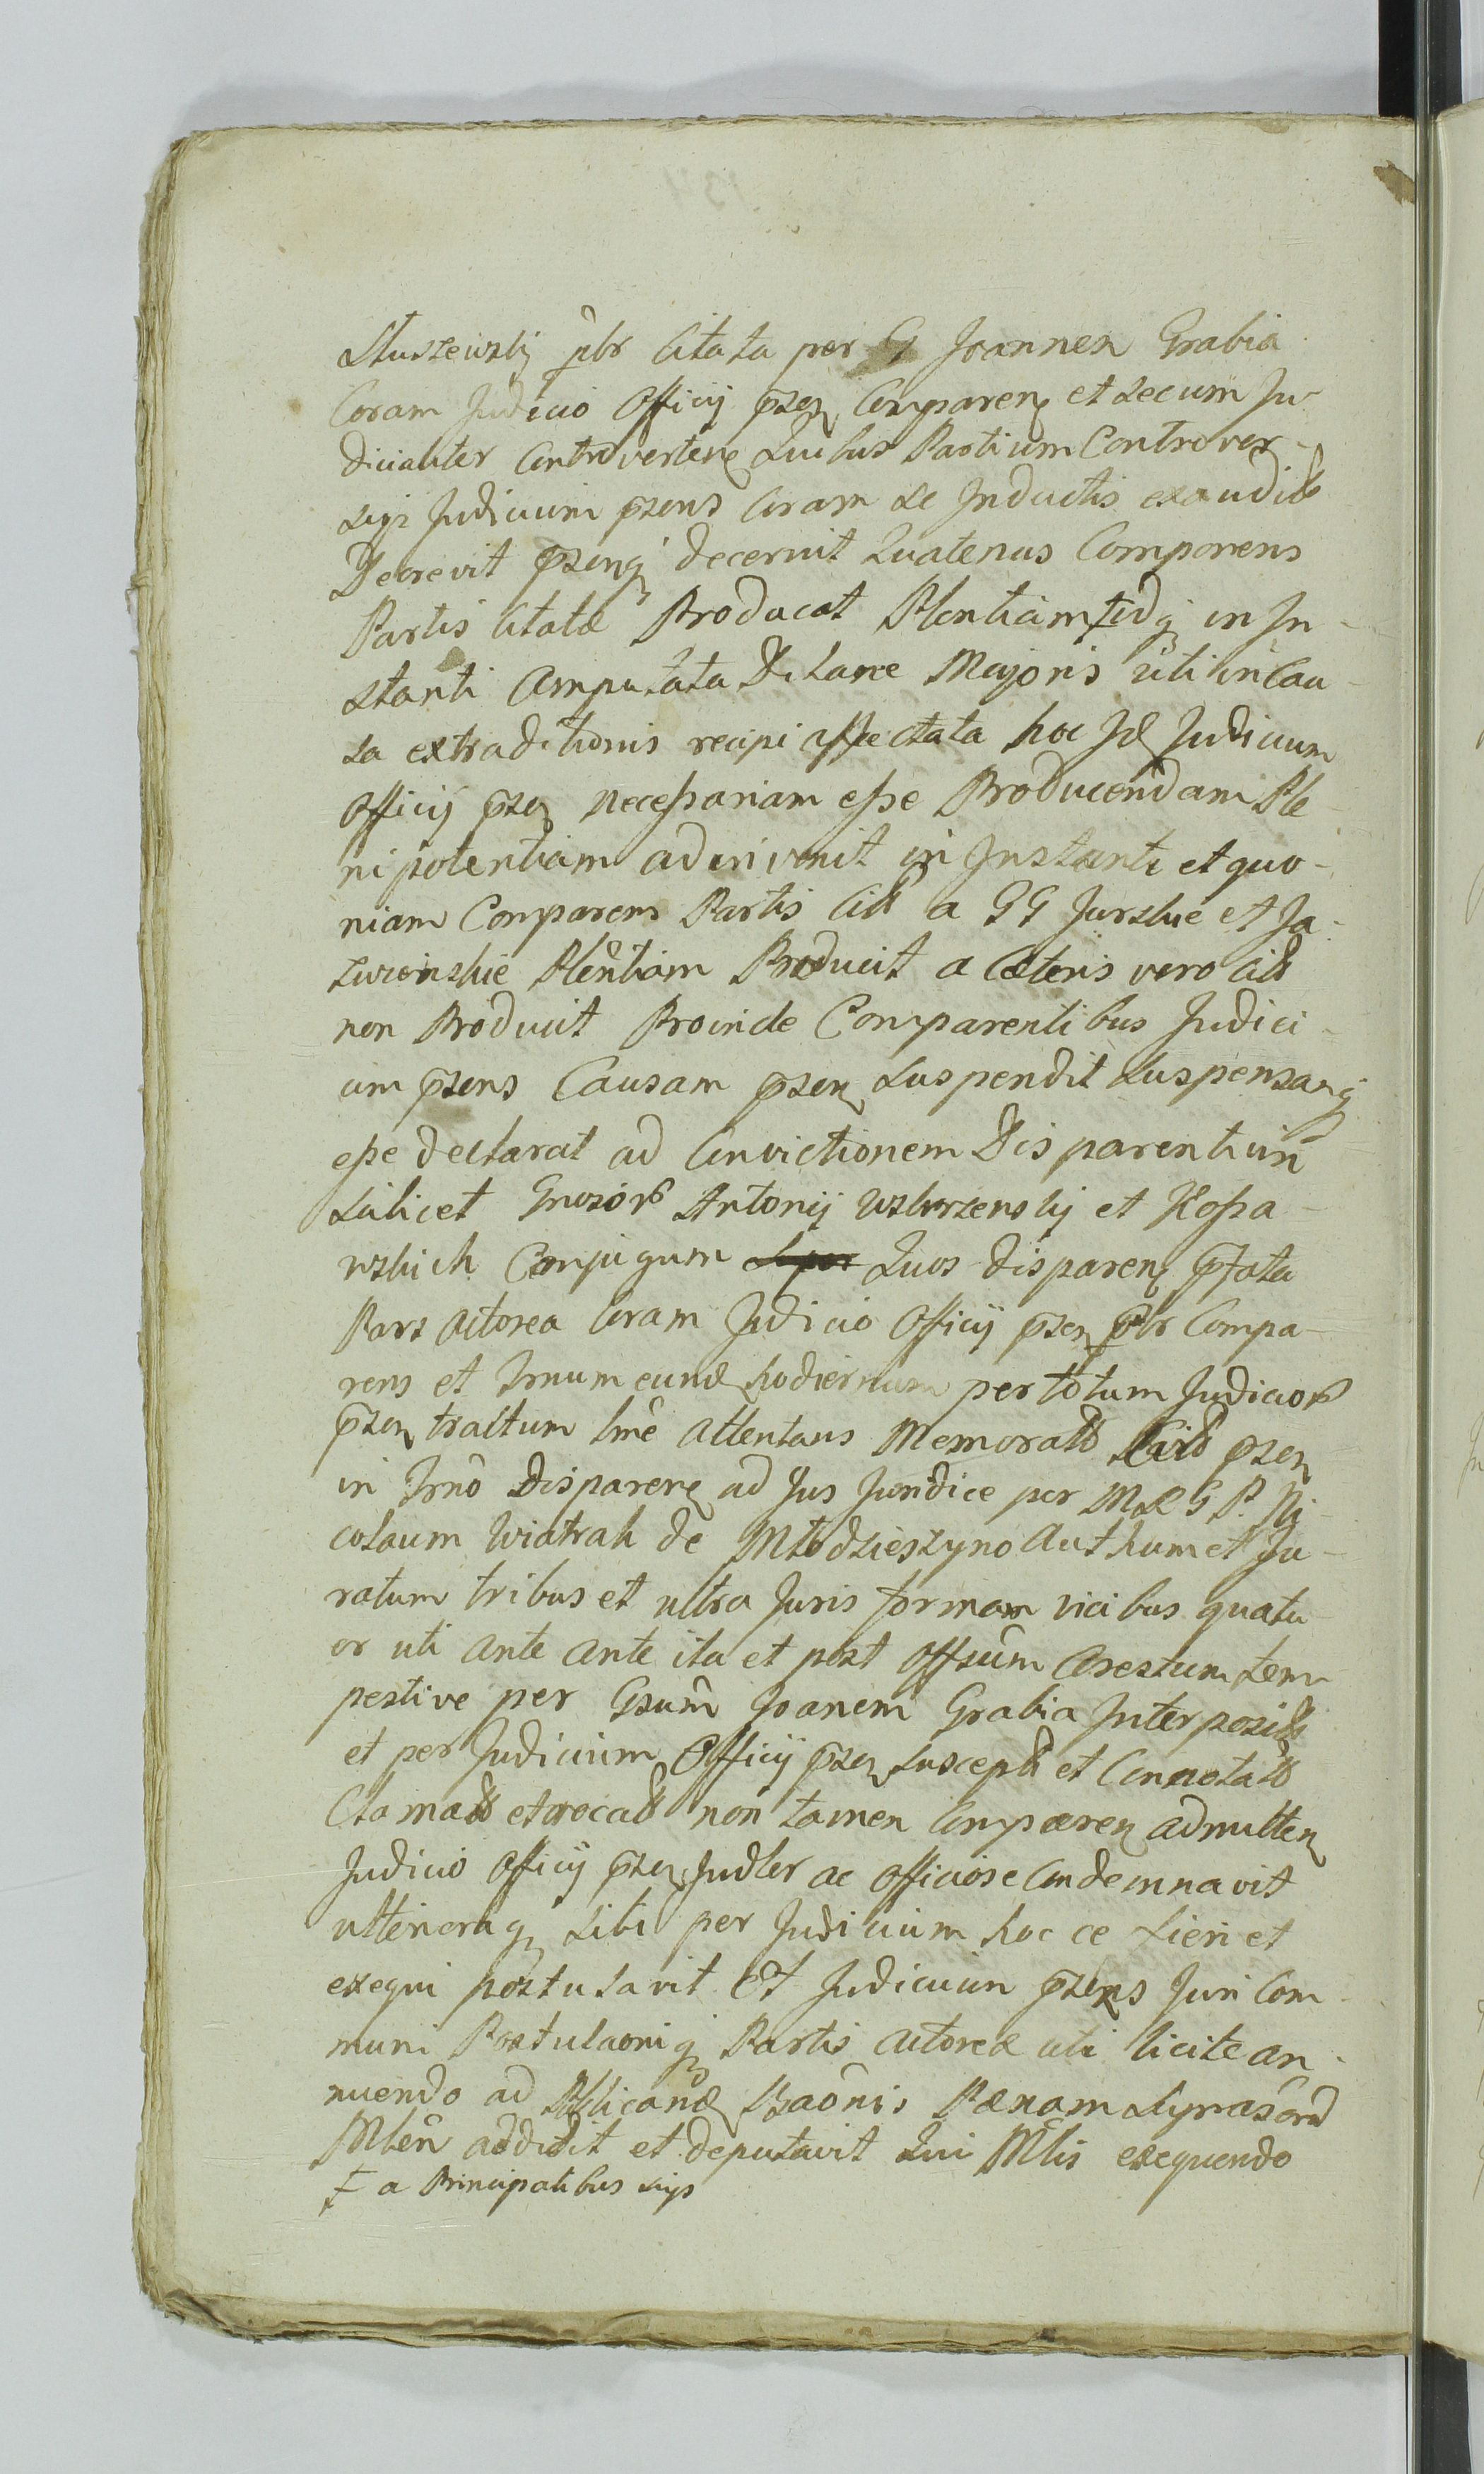 Stuszewskij pbr Citata per G Joannen Grabia
Coram Judicio Officij pzen Comparen et Secum Ju-
dicialiter Controverten Quibus Partium Controver-
sijs Judicium pzens Coram se Inductis exaudit
Decrevit pzenq decernit Quatenus Comparens
Partis Citatæ Producat Plentiam ‡ idq in In-
stanti Amputata Dilaone Majoris uti in Cau-
sa extraditionis recipi affectata hoc Id Judicium
Officij pzen necessariam esse Producendam Ple-
nipotentiam adinvenit in Instanti et quo-
niam Comparens Partis Citt a GG Jurskie et Ja-
zwoinskie Plentiam Producit a Cæteris vero Citt
non Producit Proinde Comparentibus Judici-
um pzens Causam pzen Suspendit Suspensamq
esse declarat ad Convictionem Disparentium
Scilicet Gnosor Antonij Wzborzenskij et Kossa-
wskich Conjugum Quos disparen pfata
Pars Actorea Coram Judicio Officij pzen pbr Compa-
rens et Trnum eund hodiernum per totum Judicior
pzen tractum lme Attentans Memoratt Citt pzen
in Trno Disparen ad Jus Juridice per M G P. Ni-
colaum Wiatrak de Młodzieszyno Authum et Ju-
ratum tribus et ultra Juris formam vicibus quatu-
or uti Ante Ante ita et post Offsum Arestum tem-
pestive per Gsum Joanem Grabia Interpositt
et per Judicium Officij pzen Suscept et Connotatt
Clamatt et vocatt non tamen Comparen admitten
Judicio Officij pzen Judler ac Officiose Condemnavit
ulterioraq Sibi per Judicium hoc ce fieri et
exequi postulavit Et Judicium pzens Juri Com-
muni Postulaoniq Partis Actoreæ uti licite an-
nuendo ad Pblicand Baonis Pænam
Mlen addidit et deputavit Qui Mlis exequendo
‡ a Principalibus suis